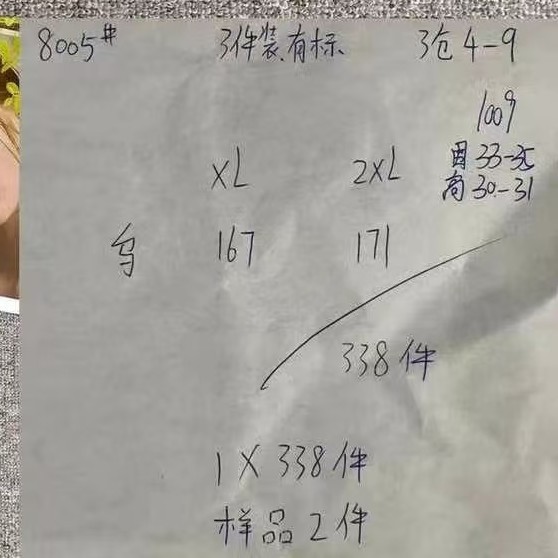 8005# 3件装有标 3仓4-9
1009
XL 2XL 周33-35
高30-31
乌 167 171
338件
1X338件
样品2件